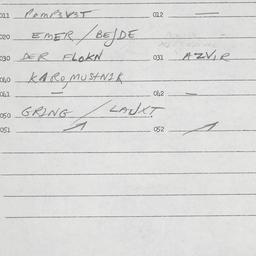 011 POMPSVST 012 —
020 EMER / BEJDE
030 DER FLOKN 031 AZVIR
040 KAROMUSTNIK
041 — 042 —
050 GRING / LAUXT
051 052